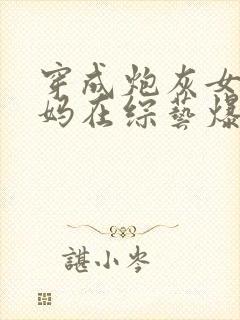 穿成炮灰女
妈在综艺爆
諶小岑